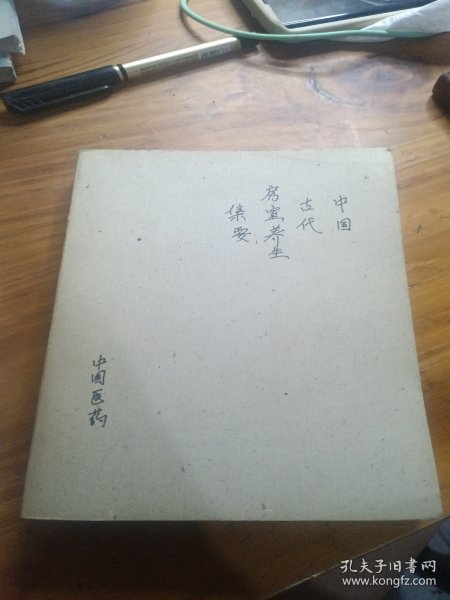 中国
古代
房室养生
集要
中国医药
孔夫子旧书网
www.kongfz.com